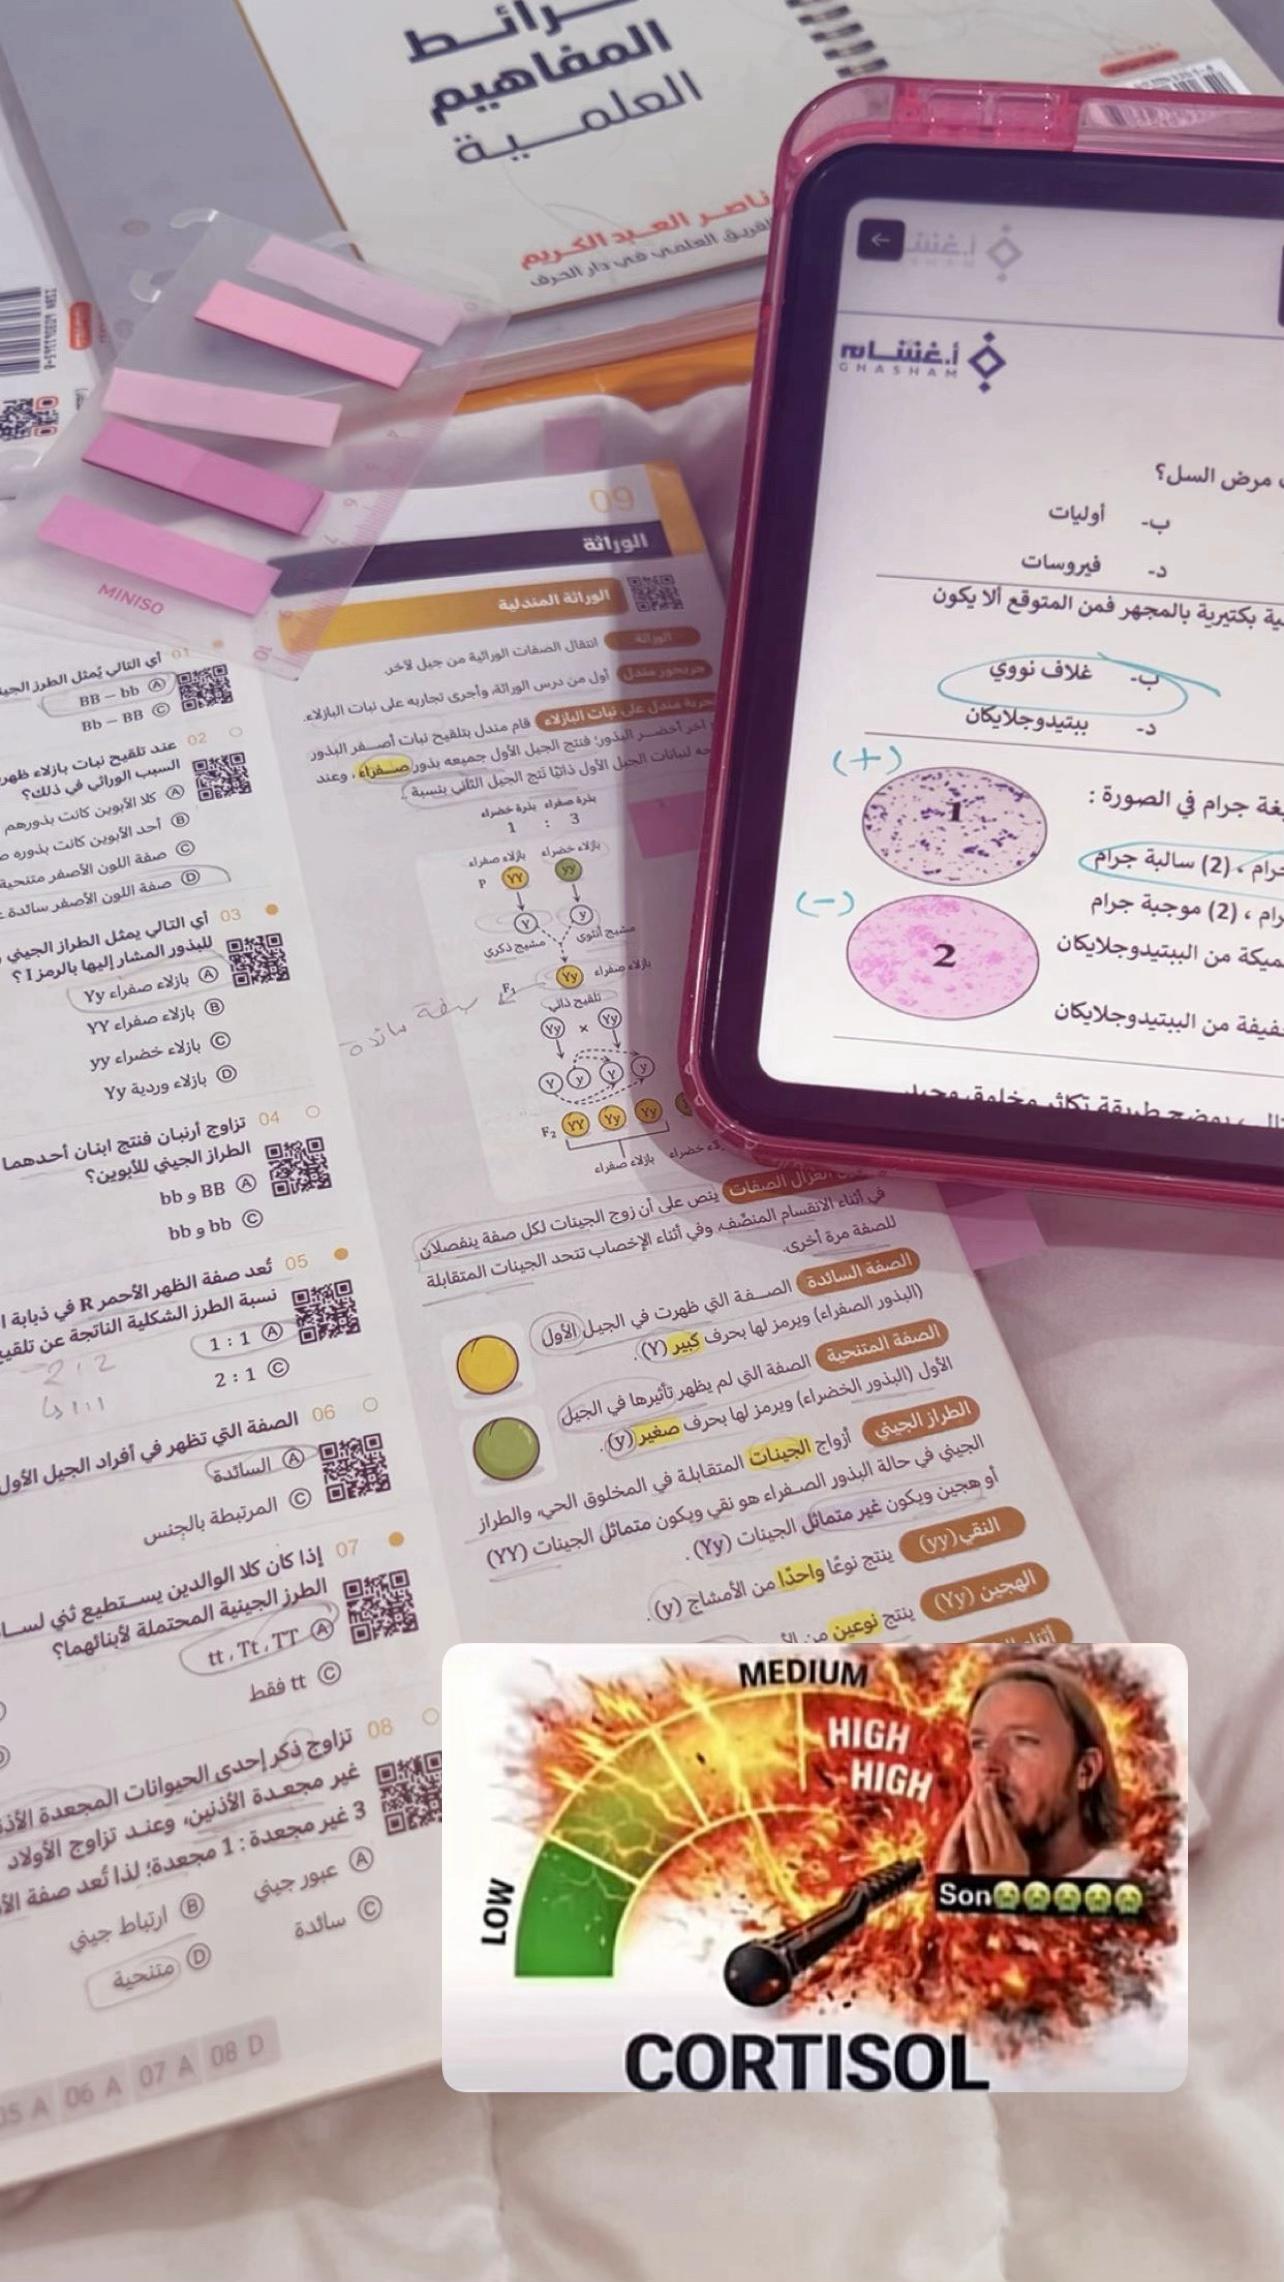 خرائط
المفاهيم
العلمية
ناصر العبد الكريم
الفريق العلمي في دار الحرف
MINISO
أ.غشام
GHASHAM
مرض السل؟
ب- أوليات
د- فيروسات
بكتيرية بالمجهر فمن المتوقع ألا يكون
ب- غلاف نووي
د- ببتيدوجلايكان
(+)
1
جرام في الصورة :
، (2) سالبة جرام
(-)
، (2) موجبة جرام
2
من الببتيدوجلايكان
من الببتيدوجلايكان
يوضح طريقة تكاثر مخلوق
09
الوراثة
الوراثة المندلية
الوراثة انتقال الصفات الوراثية من جيل لآخر.
جريجور مندل أول من درس الوراثة، وأجرى تجاربه على نبات البازلاء.
تجربة مندل على نبات البازلاء قام مندل بتلقيح نبات أصفر البذور
آخر أخضر البذور؛ فنتج الجيل الأول جميعه بذور صفراء، وعند
لنباتات الجيل الأول ذاتيًا نتج الجيل الثاني بنسبة
بذرة صفراء بذرة خضراء
3 : 1
بازلاء خضراء بازلاء صفراء
P YY yy
Y y
مشيج أنثوي مشيج ذكري
F1 Yy بازلاء صفراء
صفة سائدة
تلقيح ذاتي
Yy × Yy
Y y Y y
F2 YY Yy Yy
بازلاء خضراء بازلاء صفراء
انعزال الصفات ينص على أن زوج الجينات لكل صفة ينفصلان
في أثناء الانقسام المنصف، وفي أثناء الإخصاب تتحد الجينات المتقابلة
للصفة مرة أخرى.
الصفة السائدة الصفة التي ظهرت في الجيل الأول
(البذور الصفراء) ويرمز لها بحرف كبير (Y).
الصفة المتنحية الصفة التي لم يظهر تأثيرها في الجيل
الأول (البذور الخضراء) ويرمز لها بحرف صغير (y).
الطراز الجيني أزواج الجينات المتقابلة في المخلوق الحي، والطراز
الجيني في حالة البذور الصفراء هو نقي ويكون متماثل الجينات (YY)
أو هجين ويكون غير متماثل الجينات (Yy).
النقي (yy) ينتج نوعًا واحدًا من الأمشاج (y).
الهجين (Yy) ينتج نوعين من
01 أي التالي يُمثل الطرز
A BB – bb
C Bb – BB
02 عند تلقيح نبات بازلاء
السبب الوراثي في ذلك؟
A كلا الأبوين كانت بذورهم
B أحد الأبوين كانت بذوره
C صفة اللون الأصفر متنحية
D صفة اللون الأصفر سائدة
03 أي التالي يمثل الطراز الجيني
للبذور المشار إليها بالرمز 1؟
A بازلاء صفراء Yy
B بازلاء صفراء YY
C بازلاء خضراء yy
D بازلاء وردية Yy
04 تزاوج أرنبان فنتج ابنان أحدهما
الطراز الجيني للأبوين؟
A BB و bb
C bb و bb
05 تُعد صفة الظهر الأحمر R في ذبابة
نسبة الطرز الشكلية الناتجة عن
A 1 : 1
C 2 : 1
2:2
1:1
06 الصفة التي تظهر في أفراد الجيل الأول
A السائدة
C المرتبطة بالجنس
07 إذا كان كلا الوالدين يستطيع ثني
الطرز الجينية المحتملة لأبنائهما؟
A tt ، Tt ، TT
C tt فقط
08 تزاوج ذكر إحدى الحيوانات المجعدة
غير مجعدة الأذنين، وعند تزاوج الأولاد
3 غير مجعدة : 1 مجعدة؛ لذا تُعد صفة
A عبور جيني
B ارتباط جيني
C سائدة
D متنحية
05 A 06 A 07 A 08 D
LOW
MEDIUM
HIGH
HIGH
Son😭😭😭😭😭
CORTISOL